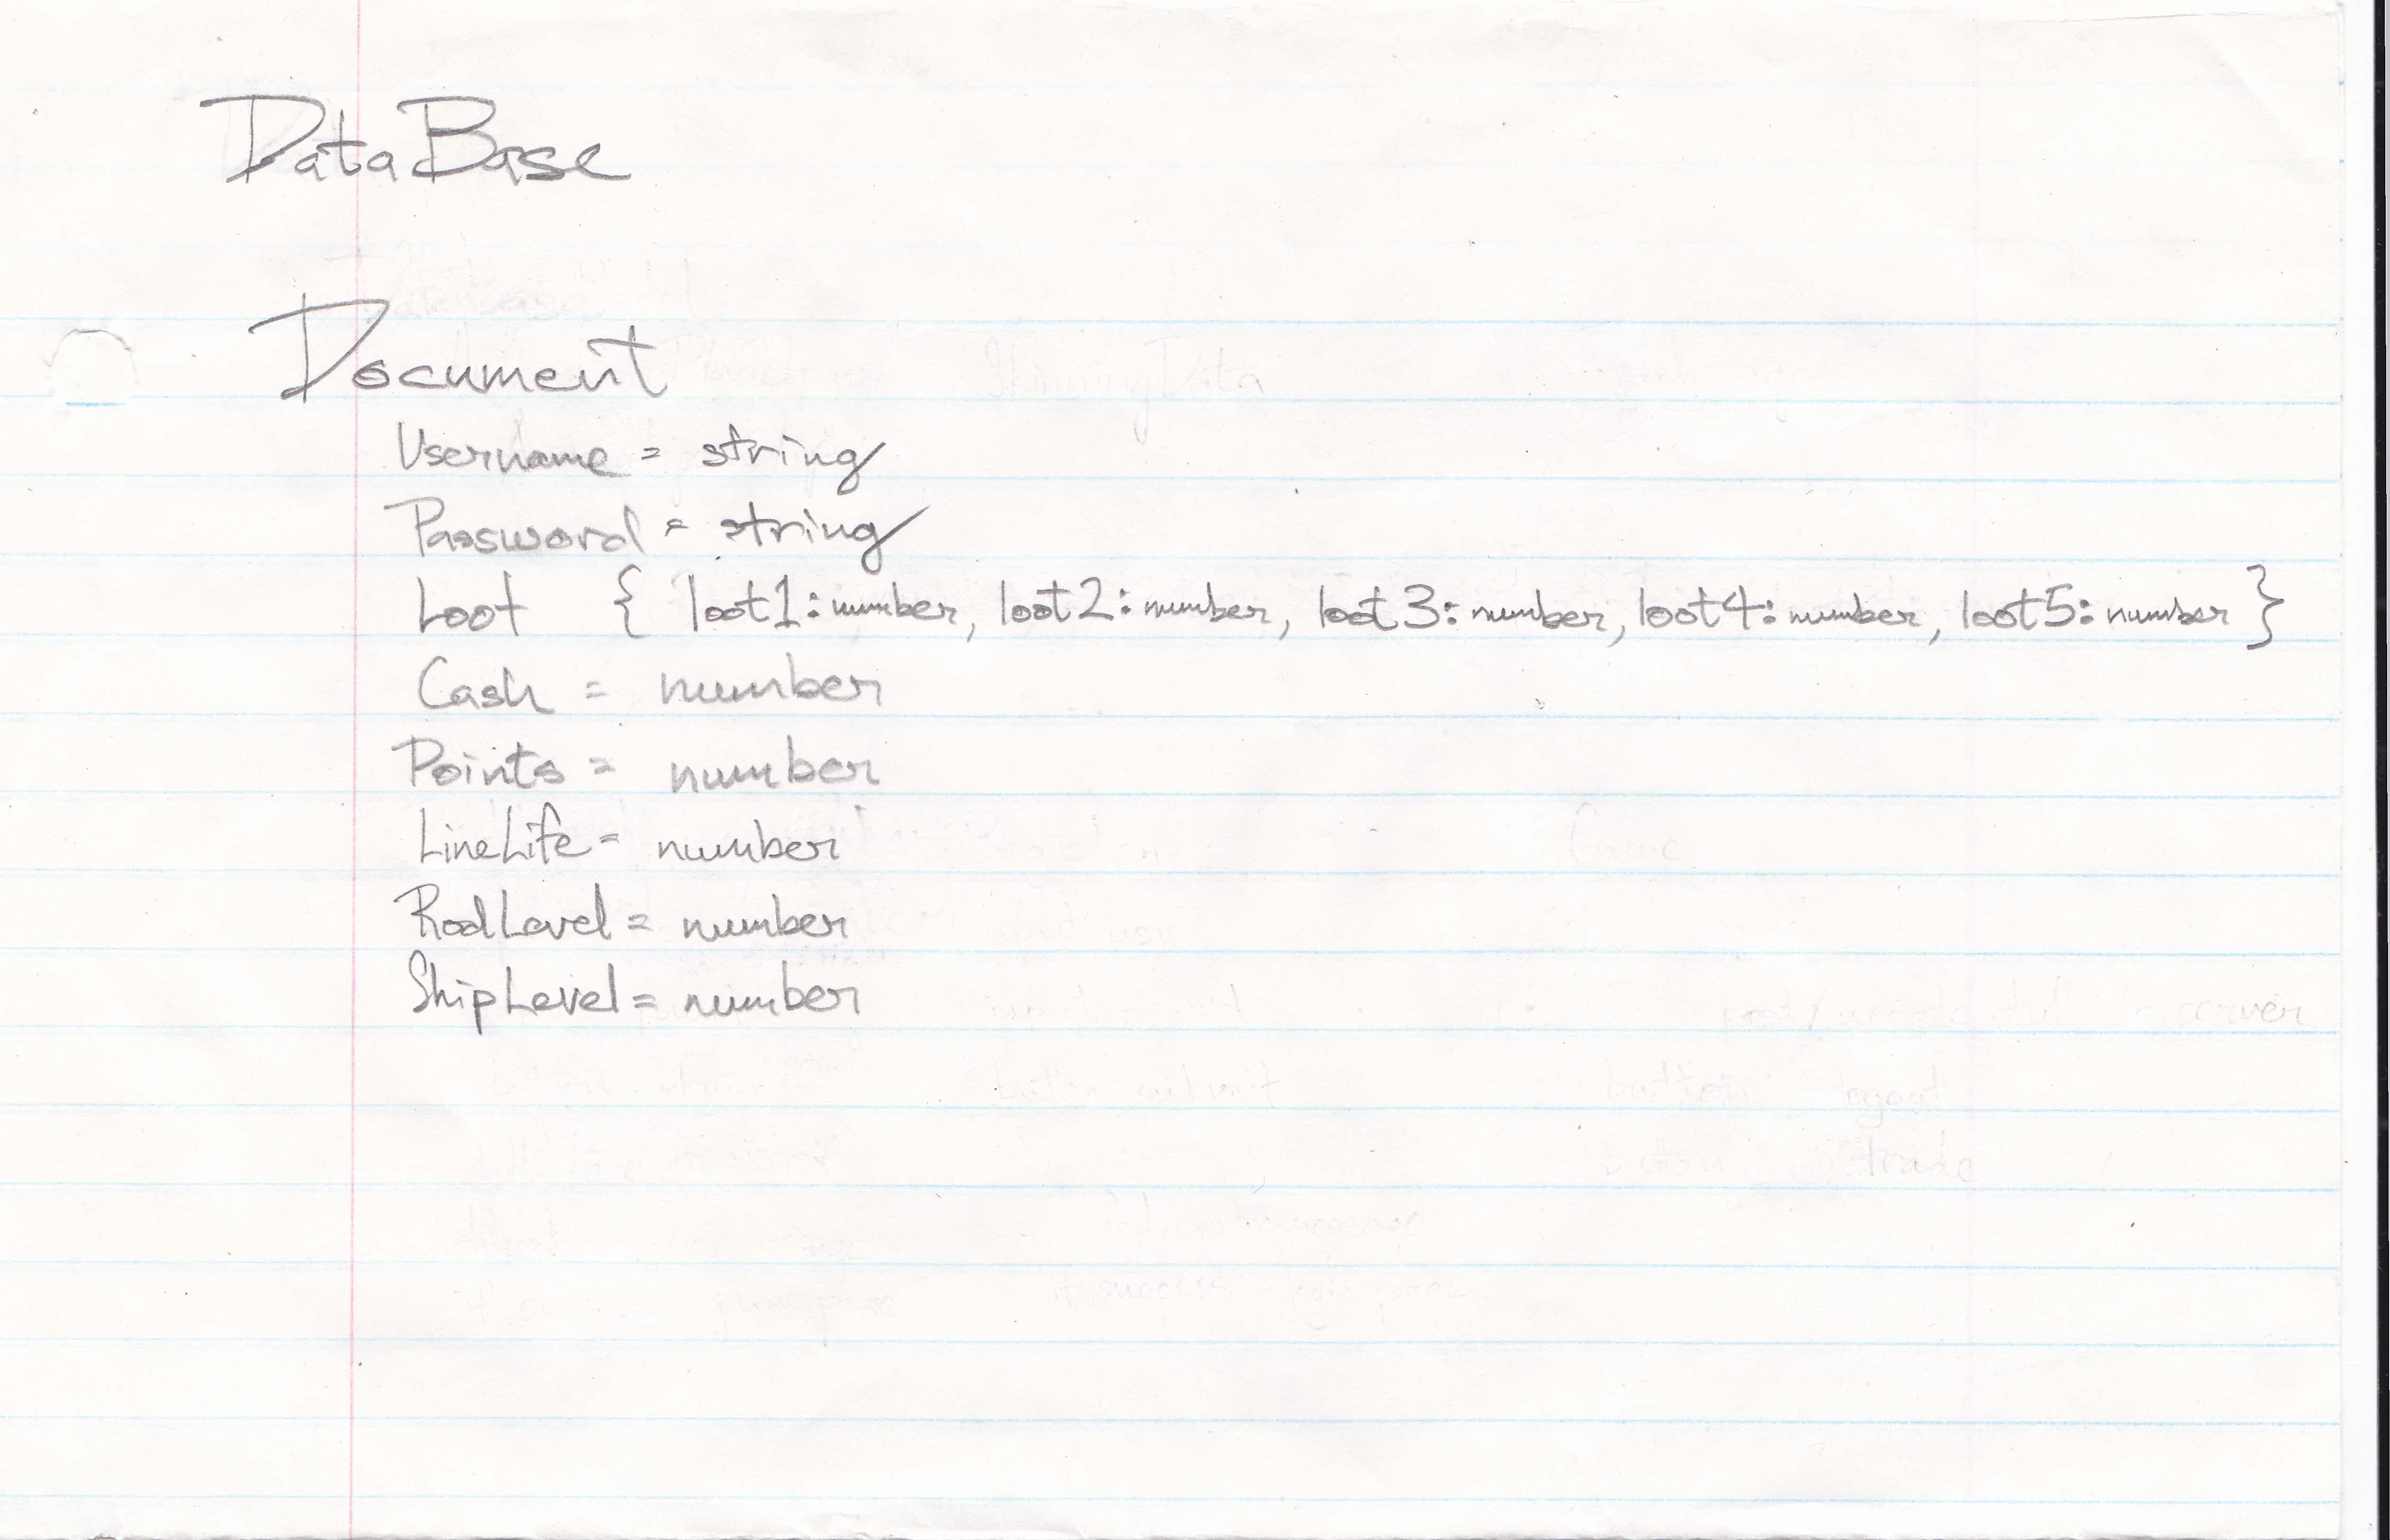 DataBase
Document
Username = string
Password = string
Loot { loot1: number, loot2: number, loot3: number, loot4: number, loot5: number }
Cash = number
Points = number
LineLife = number
RodLevel = number
ShipLevel = number
server
button logout
button trade